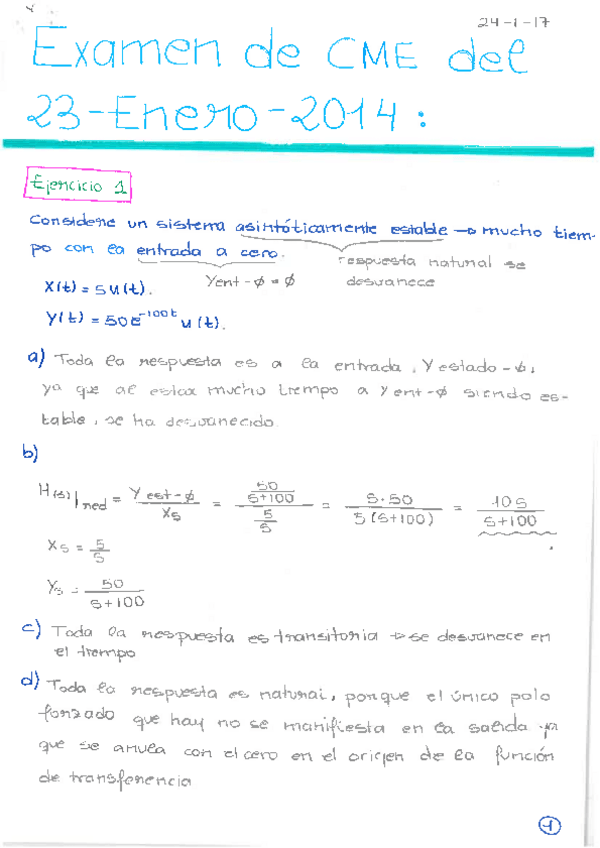 24-1-17
Examen de CME del
23-Enero-2014:
Ejercicio 1
Considere un sistema asintóticamente estable → mucho tiem-
po con la entrada a cero.
respuesta natural se
desvanece
X(t) = 5u(t).
Yent-ø = ø
Y(t) = 50e^-100t u(t).
a) Toda la respuesta es a la entrada, Y estado-ø,
ya que al estar mucho tiempo a Y ent-ø siendo es-
table, se ha desvanecido.
b)
H(s)|red = Y est-ø / Xs = (50/(s+100)) / (5/s) = s·50 / 5(s+100) = 10s / s+100
Xs = 5/s
Ys = 50 / s+100
c) Toda la respuesta es transitoria → se desvanece en
el tiempo
d) Toda la respuesta es natural, porque el único polo
forzado que hay no se manifiesta en la salida ya
que se anula con el cero en el origen de la función
de transferencia
1